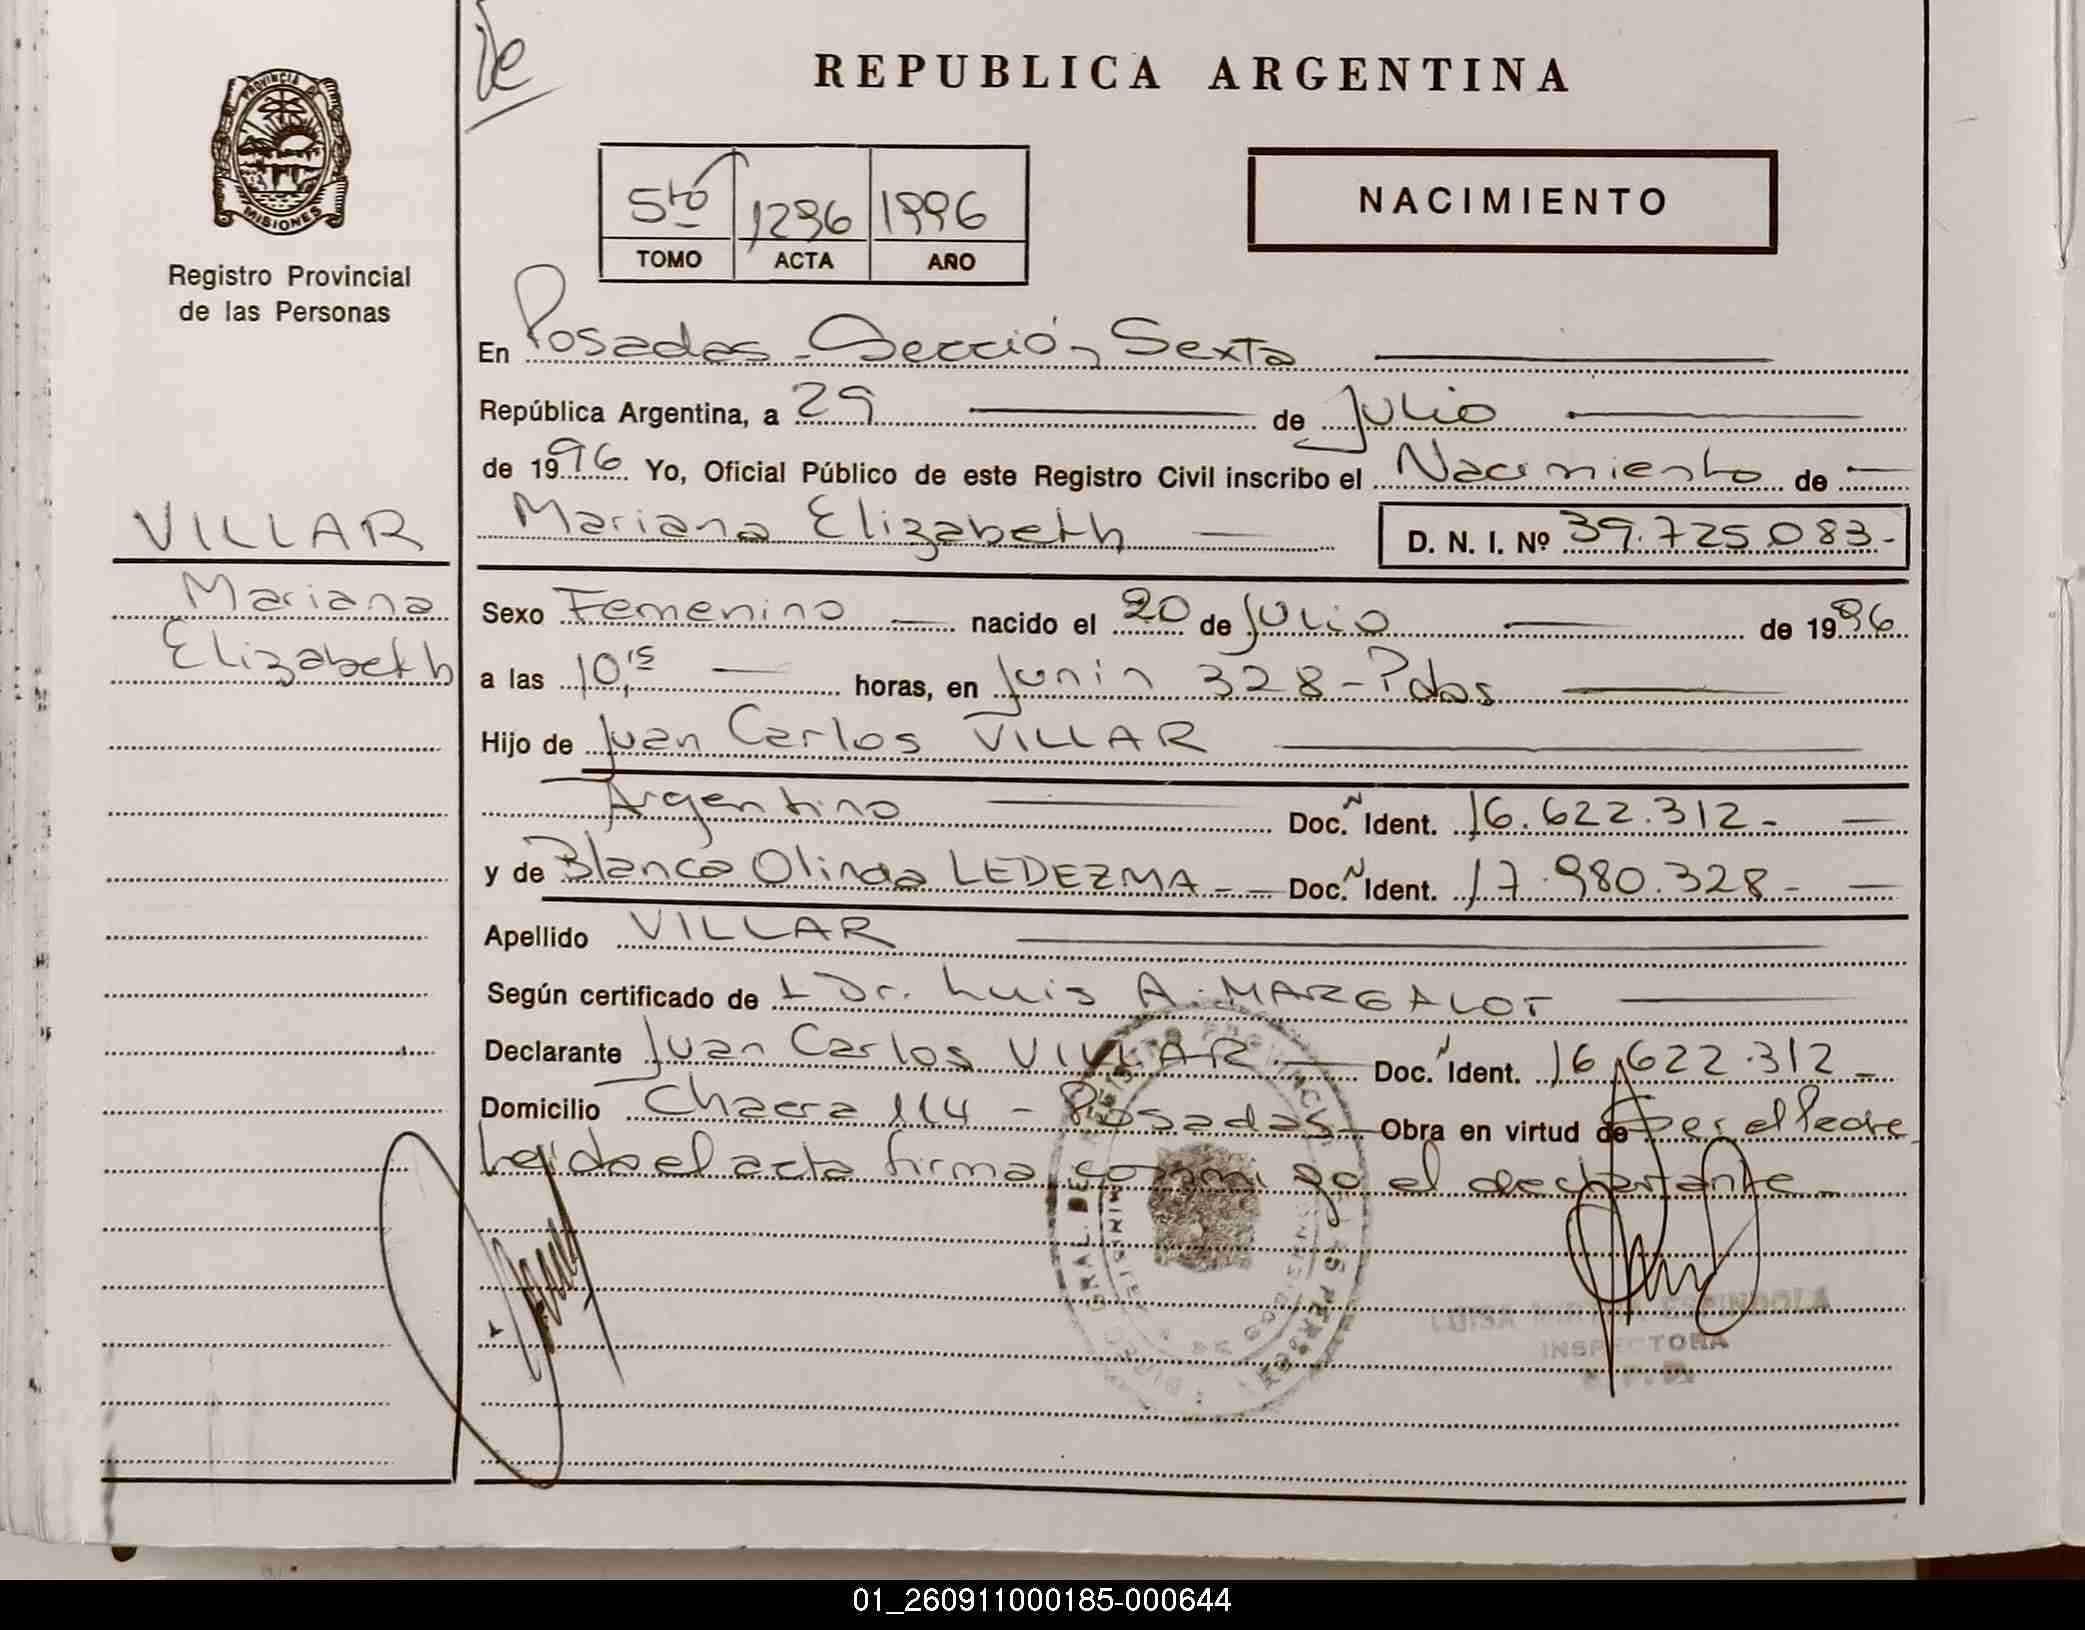 De
REPUBLICA ARGENTINA
PROVINCIA DE
MISIONES
Registro Provincial
de las Personas
5to 1296 1996
TOMO ACTA AÑO
NACIMIENTO
En Posadas - Sección Sexta
República Argentina, a 29 de Julio
de 1996 Yo, Oficial Público de este Registro Civil inscribo el Nacimiento de
Mariana Elizabeth D. N. I. Nº 39.725.083-
VILLAR
Mariana
Elizabeth
Sexo Femenino nacido el 20 de Julio de 1996
a las 10,15 horas, en Junín 328 - Pdas
Hijo de Juan Carlos VILLAR
Argentino Doc. Ident. 16.622.312-
y de Blanca Olinda LEDEZMA - Doc. Ident. 17.980.328-
Apellido VILLAR
Según certificado de Dr. Luis A. MARGALOT
Declarante Juan Carlos VILLAR Doc. Ident. 16.622.312-
Domicilio Chacra 114 - Posadas Obra en virtud de Ser el Padre
Leído el acta firma conmigo el declarante
LUISA ESPINDOLA
INSPECTORA
01_260911000185-000644